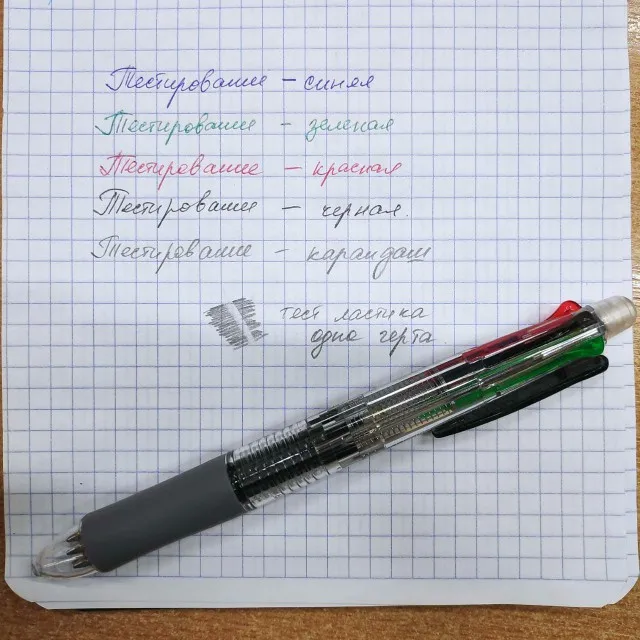 Тестирование – синяя
Тестирование – зеленая
Тестирование – красная
Тестирование – черная.
Тестирование – карандаш
тест ластика
одна черта